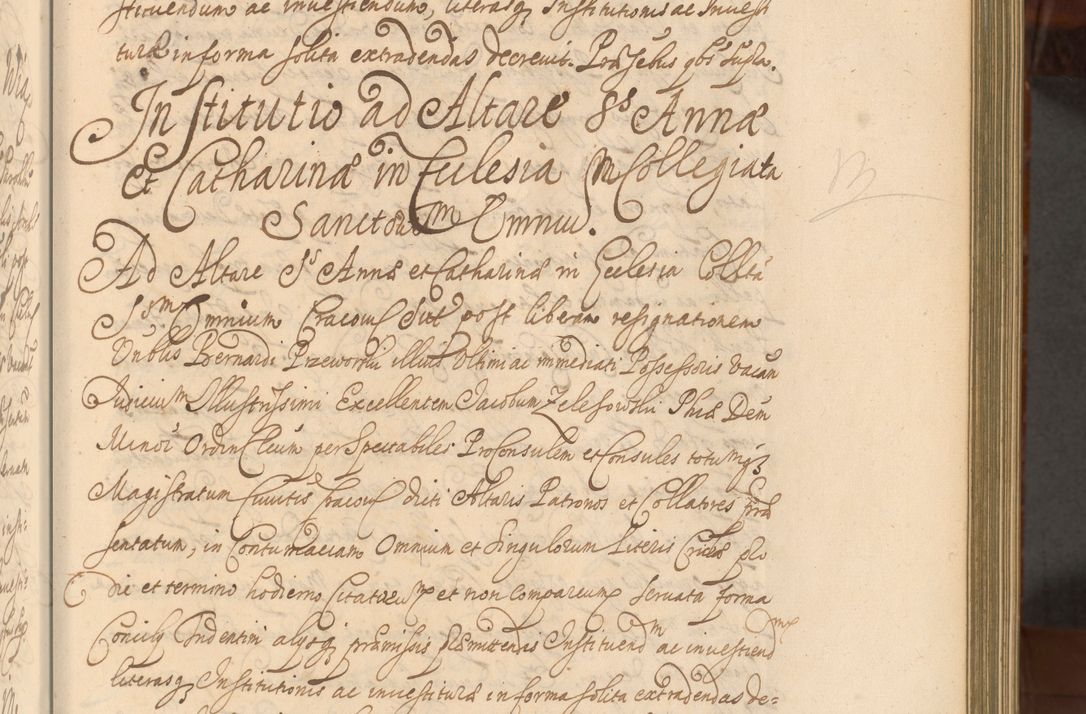 stituendum ac investiendum, literasq3 Institutionis ac Investi
turæ in forma solita extradendas decrevit. Præsebus qbs supra.
Institutio ad Altare SS Annæ
Et Catharinæ in Ecclesia Collegiata
Sanctorum Omniu.
Ad Altare SS Annæ et Catharinæ in Ecclesia Colltã
SSm Omnium Cracov Sitũ post liberam resignationem
Vnblis Bernardi Przeworski illius Vltimi ac immediati Possessoris vacan
Judicium Illustrissimi Excellentem Jacobum Zelesowski Phiæ Dem
Minor Ordin Cleum per Spectabiles ProConsulem et Consules totumq3
Magistratum Civitis Cracov dicti Altaris Patronos et Collatores præ
sentatum, in Contumaciam Omnium et Singulorum Literis pro
die et termino hodierno Citatorum et non Comparentium servata forma
Concily Tridentini alysq3 præmissis præmittendis Instituend ac investiend
literasq3 Institutionis ac investituræ in forma solita extradendas de=